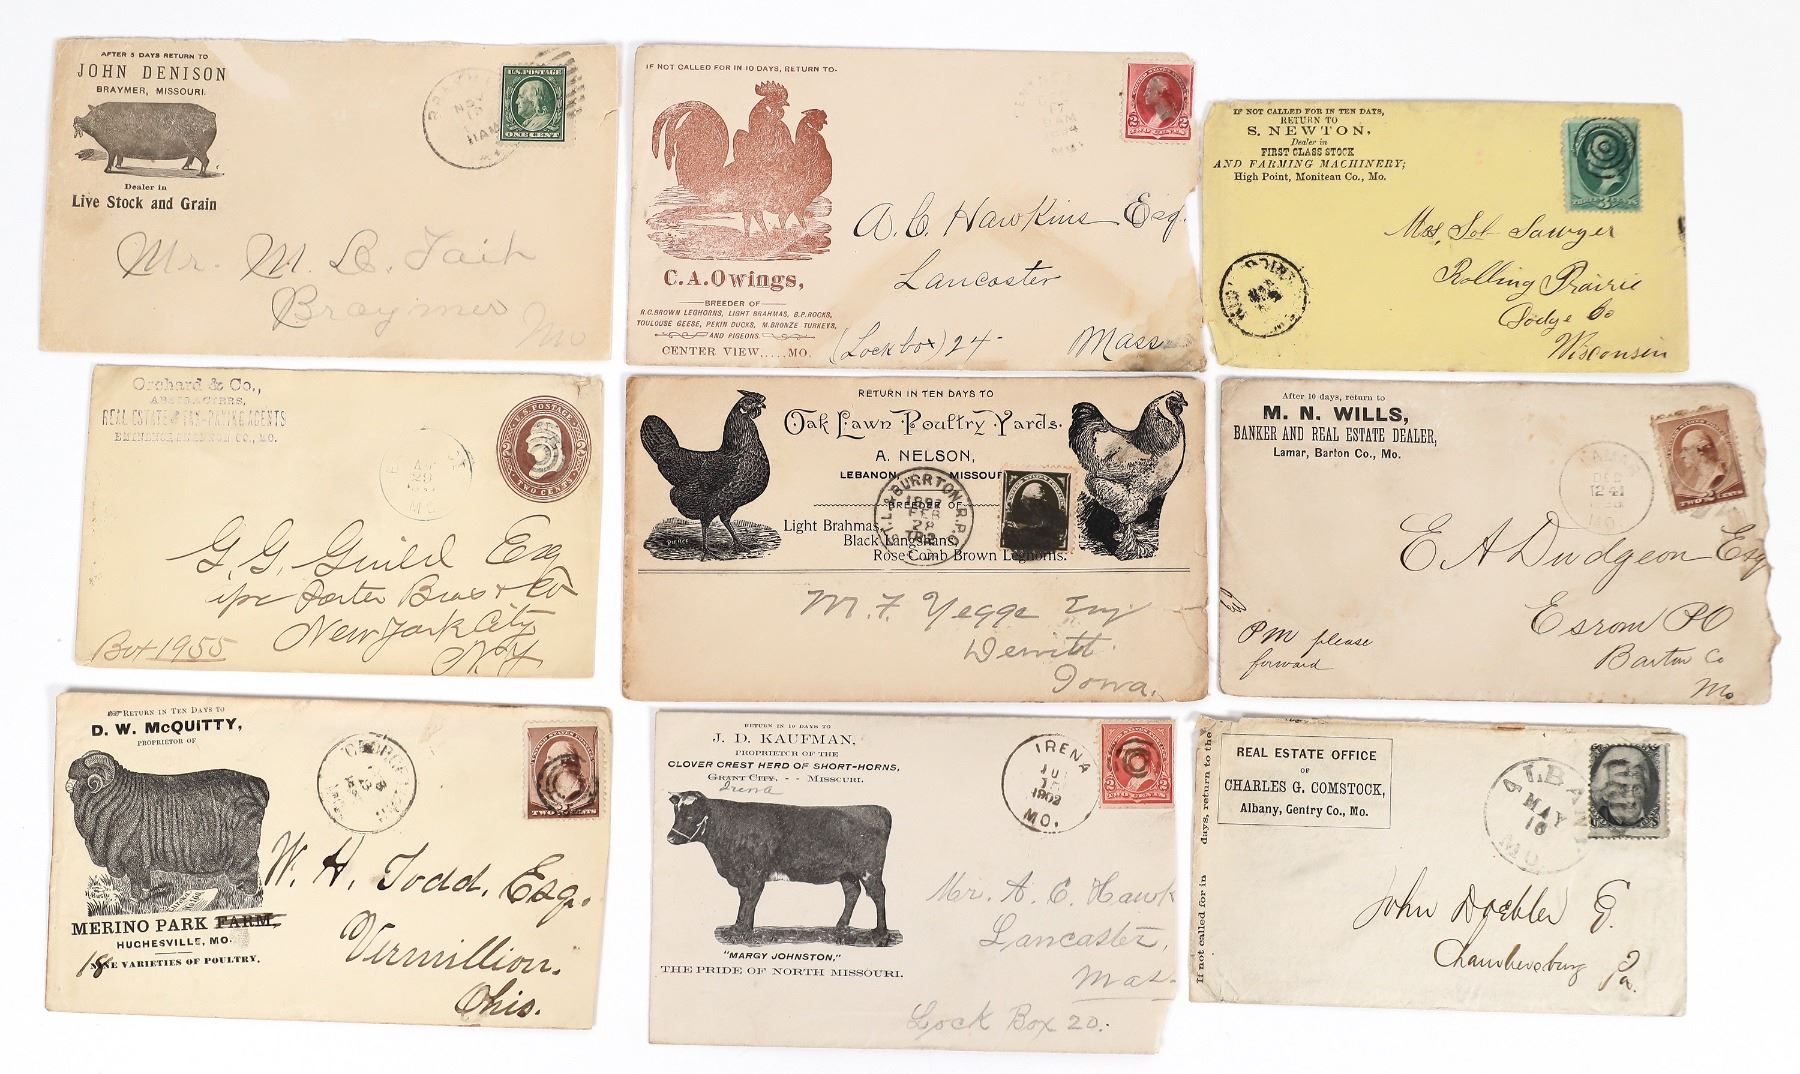 AFTER 5 DAYS RETURN TO
JOHN DENISON
BRAYMER, MISSOURI.
Dealer in
Live Stock and Grain
NOV
U.S. POSTAGE
ONE CENT
Mr. M. L. Tait
Braymer
Mo
IF NOT CALLED FOR IN 10 DAYS, RETURN TO-
C.A. Owings,
BREEDER OF
R.C. BROWN LEGHORNS, LIGHT BRAHMAS, B.P. ROCKS,
TOULOUSE GEESE, PEKIN DUCKS, M. BRONZE TURKEYS,
AND PIGEONS.
CENTER VIEW.....MO.
A. C. Hawkins Esq.
Lancaster
(Lock box) 24- Mass
IF NOT CALLED FOR IN TEN DAYS,
RETURN TO
S. NEWTON,
Dealer in
FIRST CLASS STOCK
AND FARMING MACHINERY;
High Point, Moniteau Co., Mo.
Sawyer
Rolling Prairie
Dodge Co
Wisconsin
Orchard & Co.,
ABSTRACTERS,
REAL ESTATE & TAX-PAYING AGENTS
EMINENCE SHANNON CO., MO.
U.S. POSTAGE
TWO CENTS
G. G. Guild Esq
Porter Bros & Co
New York City
N.Y
Box 1955
RETURN IN TEN DAYS TO
Oak Lawn Poultry Yards.
A. NELSON,
LEBANON, MISSOURI
BREEDER OF
Light Brahmas,
Black Langshans,
Rose Comb Brown Leghorns.
BURRTON R.P.O.
FEB
28
M. F. Yegge Esq
Dewitt
Iowa.
After 10 days, return to
M. N. WILLS,
BANKER AND REAL ESTATE DEALER,
Lamar, Barton Co., Mo.
DEC
MO.
E A Dudgeon Esq
Esrom PO
Barton Co
Mo
PM please
forward
RETURN IN TEN DAYS TO
D. W. McQUITTY,
PROPRIETOR OF
MERINO PARK FARM,
HUGHESVILLE, MO.
NINE VARIETIES OF POULTRY.
18
TWO CENTS
W. H. Todd, Esq.
Vermillion.
Ohio.
RETURN IN 10 DAYS TO
J. D. KAUFMAN,
PROPRIETOR OF THE
CLOVER CREST HERD OF SHORT-HORNS,
GRANT CITY. - - MISSOURI.
Irena
"MARGY JOHNSTON,"
THE PRIDE OF NORTH MISSOURI.
IRENA
1902
MO.
TWO CENTS
Mr. A. C. Hawk
Lancaster,
Mas.
Lock Box 20.
If not called for in days, return to the
REAL ESTATE OFFICE
OF
CHARLES G. COMSTOCK,
Albany, Gentry Co., Mo.
ALBANY
MAY
16
MO
John Doebler
Chambersburg
Pa.